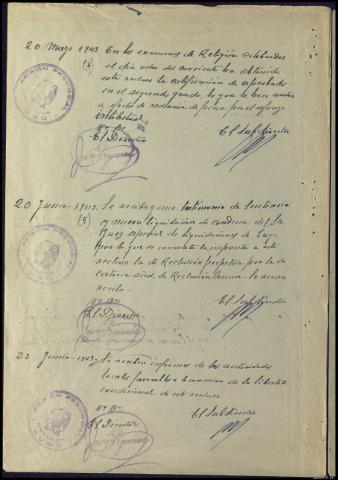 20 Mayo 1943 En los examenes de Religión celebrados
el día ocho del corriente ha obtenido
este recluso la calificación de aprobado
en el segundo grado, lo que se hace constar
a efectos de redención de pena por el esfuerzo
intelectual.
Vº Bº
El Director El Subdirector
PRISION PROVINCIAL
LUGO
20 Junio 1943. Se recibe testimonio de sentencia
y nueva liquidación de condena del
Juez especial de liquidaciones de Lugo
por lo que se conmuta la impuesta a este
recluso la de Reclusión perpetua por la de
catorce años de Reclusión menor. Se acusa
recibo.
Vº Bº El Subdirector
El Director
PRISION PROVINCIAL
LUGO
22 Junio 1943. Se reciben informes de las autoridades
locales favorables a la concesión de la libertad
condicional de este recluso
Vº Bº El Subdirector
El Director
PRISION PROVINCIAL
LUGO